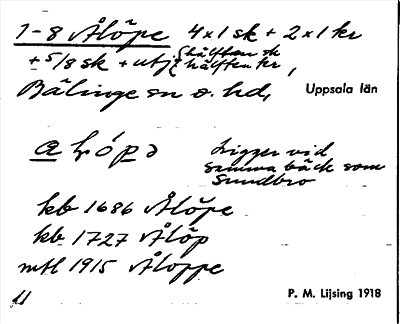 1-8 Ålöpe 4×1 sk + 2×1 kr
+ 5/8 sk + utj { hälften sk
hälften kr,
Bälinge sn o. hd,
Uppsala län
Ligger vid
samma bäck som
Sundbro
kb 1686 Ålöpe
kb 1727 Ålöp
mtl 1915 Åloppe
P. M. Lijsing 1918